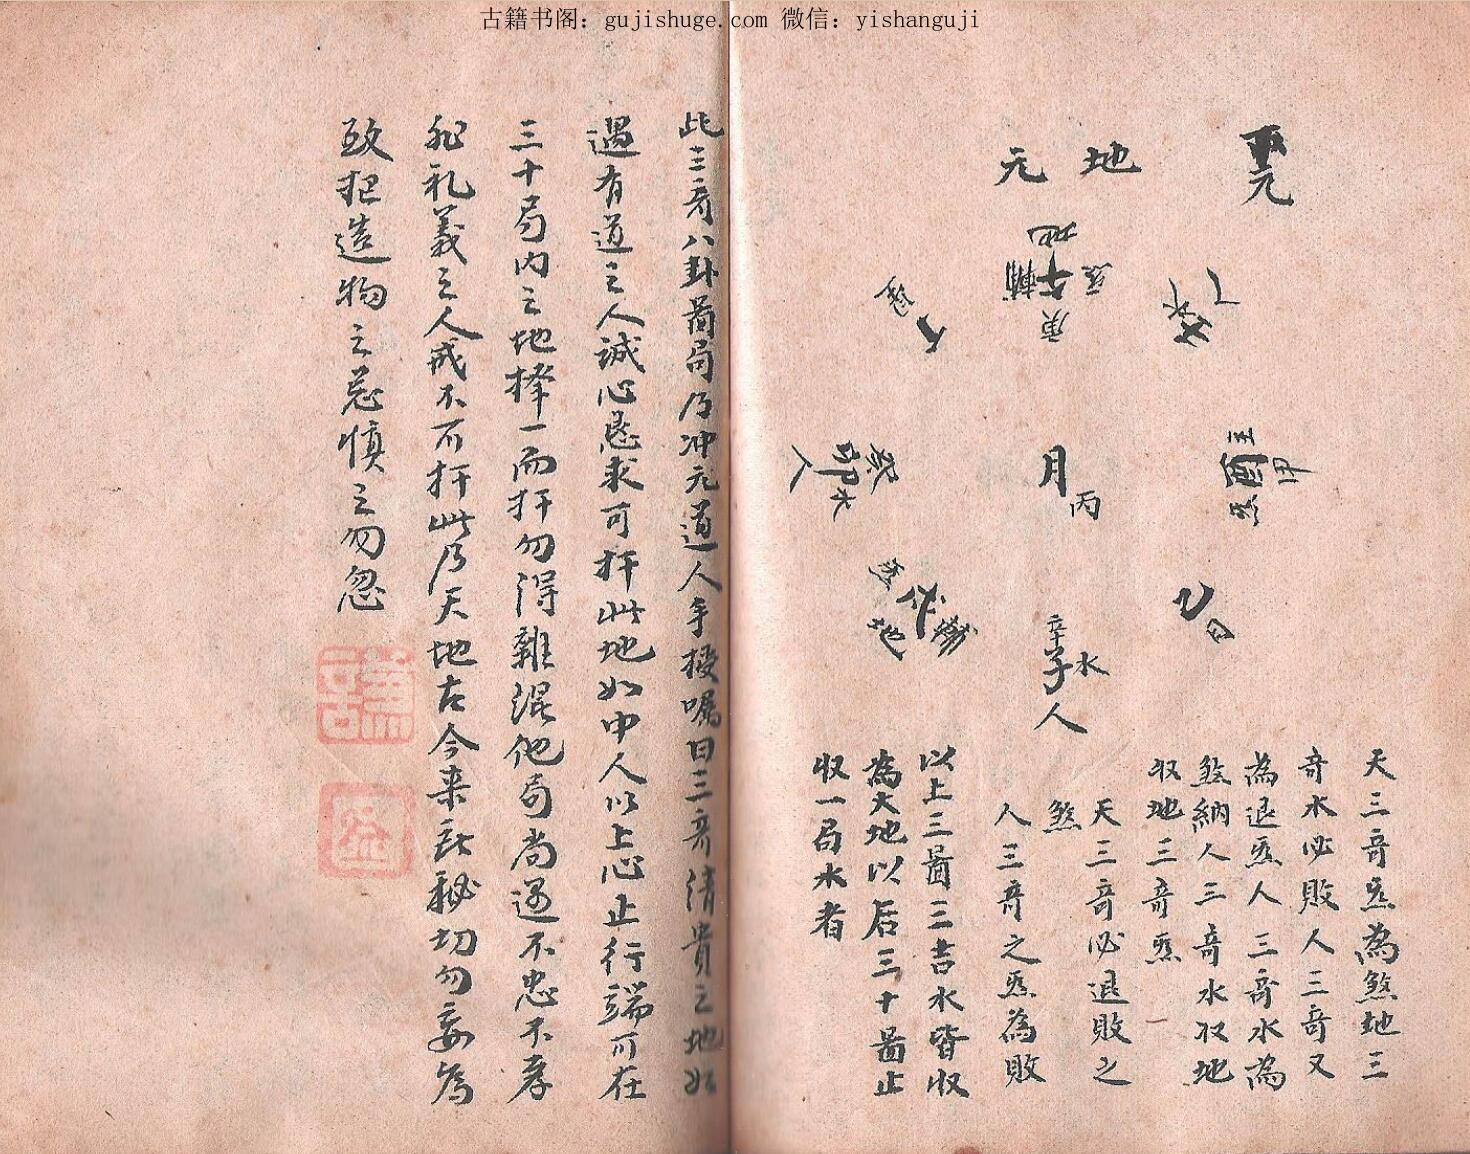 古籍书阁：gujishuge.com 微信：yishanguji
下元
地元
地
輔
庚
月
丙
甲
乙
癸
卯水
人
輔
地
子水
人
天三奇炁為煞地三
奇水必敗人三奇又
為退炁人三奇水為
煞納人三奇水收地
收地三奇炁
天三奇必退敗之
煞
人三奇之炁為敗
以上三啚三吉水皆收
為大地以后三十啚止
收一局水者
此三奇八卦啚局乃冲元道人手授嘱曰三奇清貴之地如
遇有道之人誠心恳求可扦此地如中人以上心止行端可在
三十局内之地择一而扦勿得雜混他局尚遇不忠不孝
非礼義之人戒不可扦此乃天地古今来秘切勿妄為
致犯造物之忌慎之勿忽